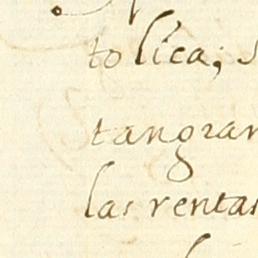 to lica;
tangran
las rentas